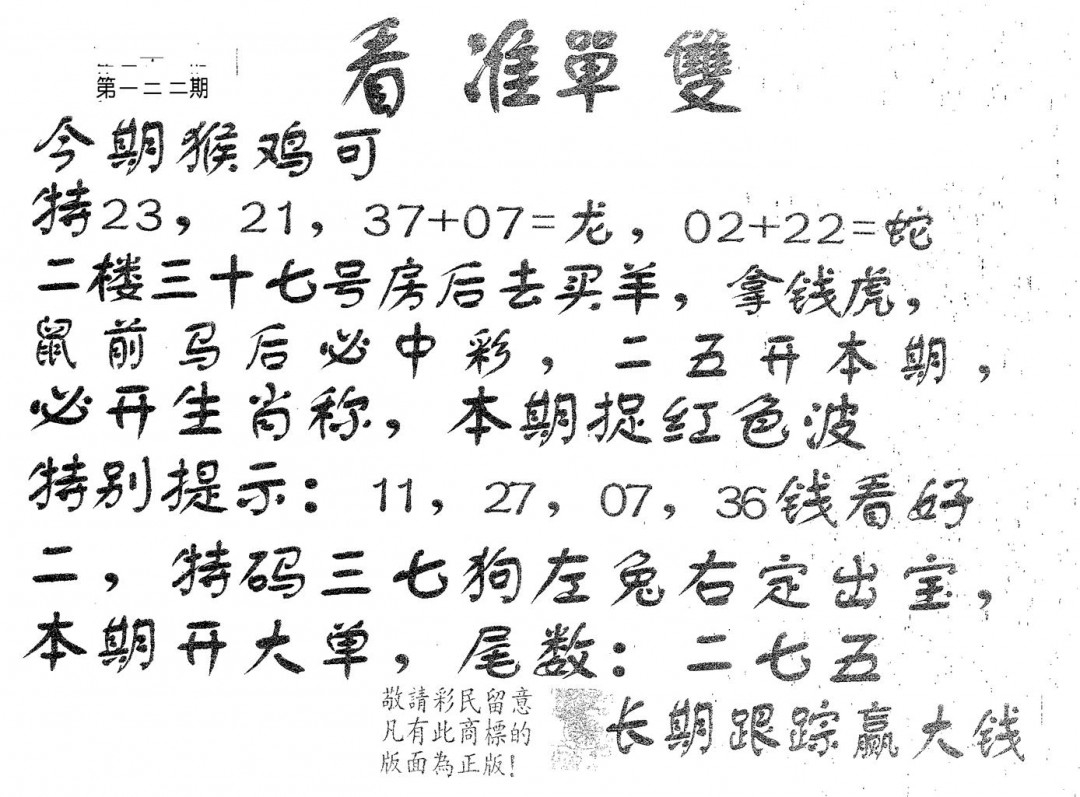 第一二二期
看准單雙
今期猴鸡可
特23，21，37+07=龙，02+22=蛇
二楼三十七号房后去买羊，拿钱虎，
鼠前马后必中彩，二五开本期，
必开生肖称，本期捉红色波
特别提示：11，27，07，36钱看好
二，特码三七狗左兔右定出宝，
本期开大单，尾数：二七五
敬請彩民留意
凡有此商標的
版面為正版！
长期跟踪赢大钱